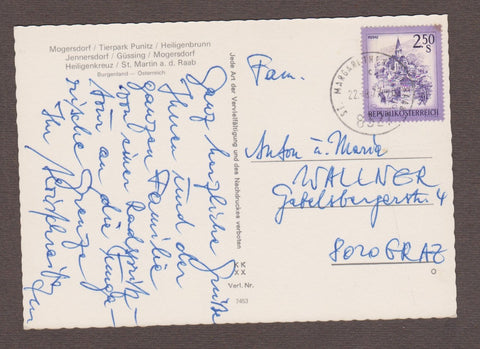 Mogersdorf / Tierpark Punitz / Heiligenbrunn
Jennersdorf / Güssing / Mogersdorf
Heiligenkreuz / St. Martin a. d. Raab
Burgenland – Österreich
Ganz herzliche Grüße
Ihnen und der
ganzen Familie
von einer Radspritz-
tour an die Unga-
rische Grenze
Ihr
Jede Art der Vervielfältigung und des Nachdruckes verboten
XK
XX
Verl. Nr.
7453
MURAU
2.50
S
REPUBLIK ÖSTERREICH
ST. MARGARETHEN
22.
Fam.
Anton u. Maria
WALLNER
Gabelsbergerstr. 4
8010 GRAZ